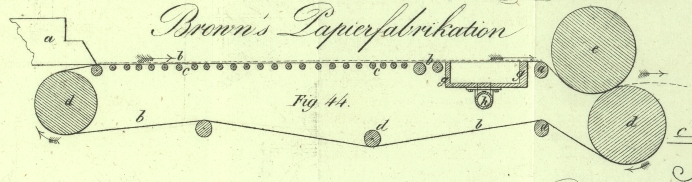 Brown's Papierfabrikation
a
b
b
e
c
c
g
g
a
h
d
Fig. 44.
b
d
b
a
d
c